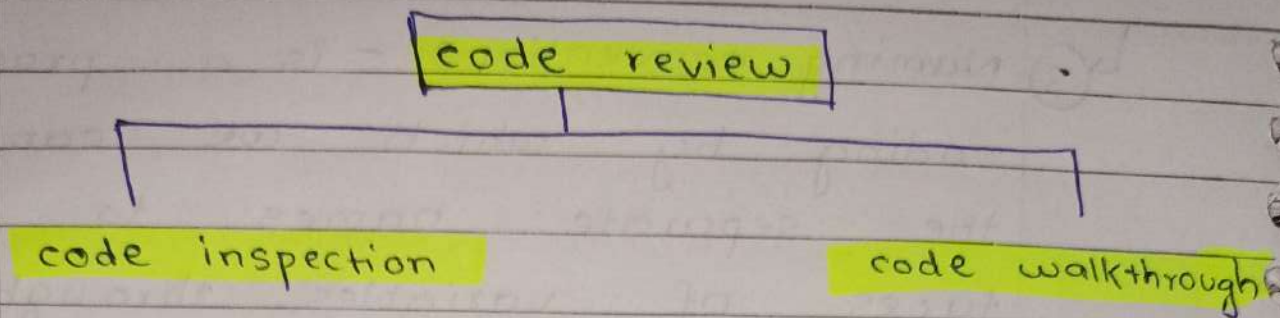 code review
code inspection
code walkthrough